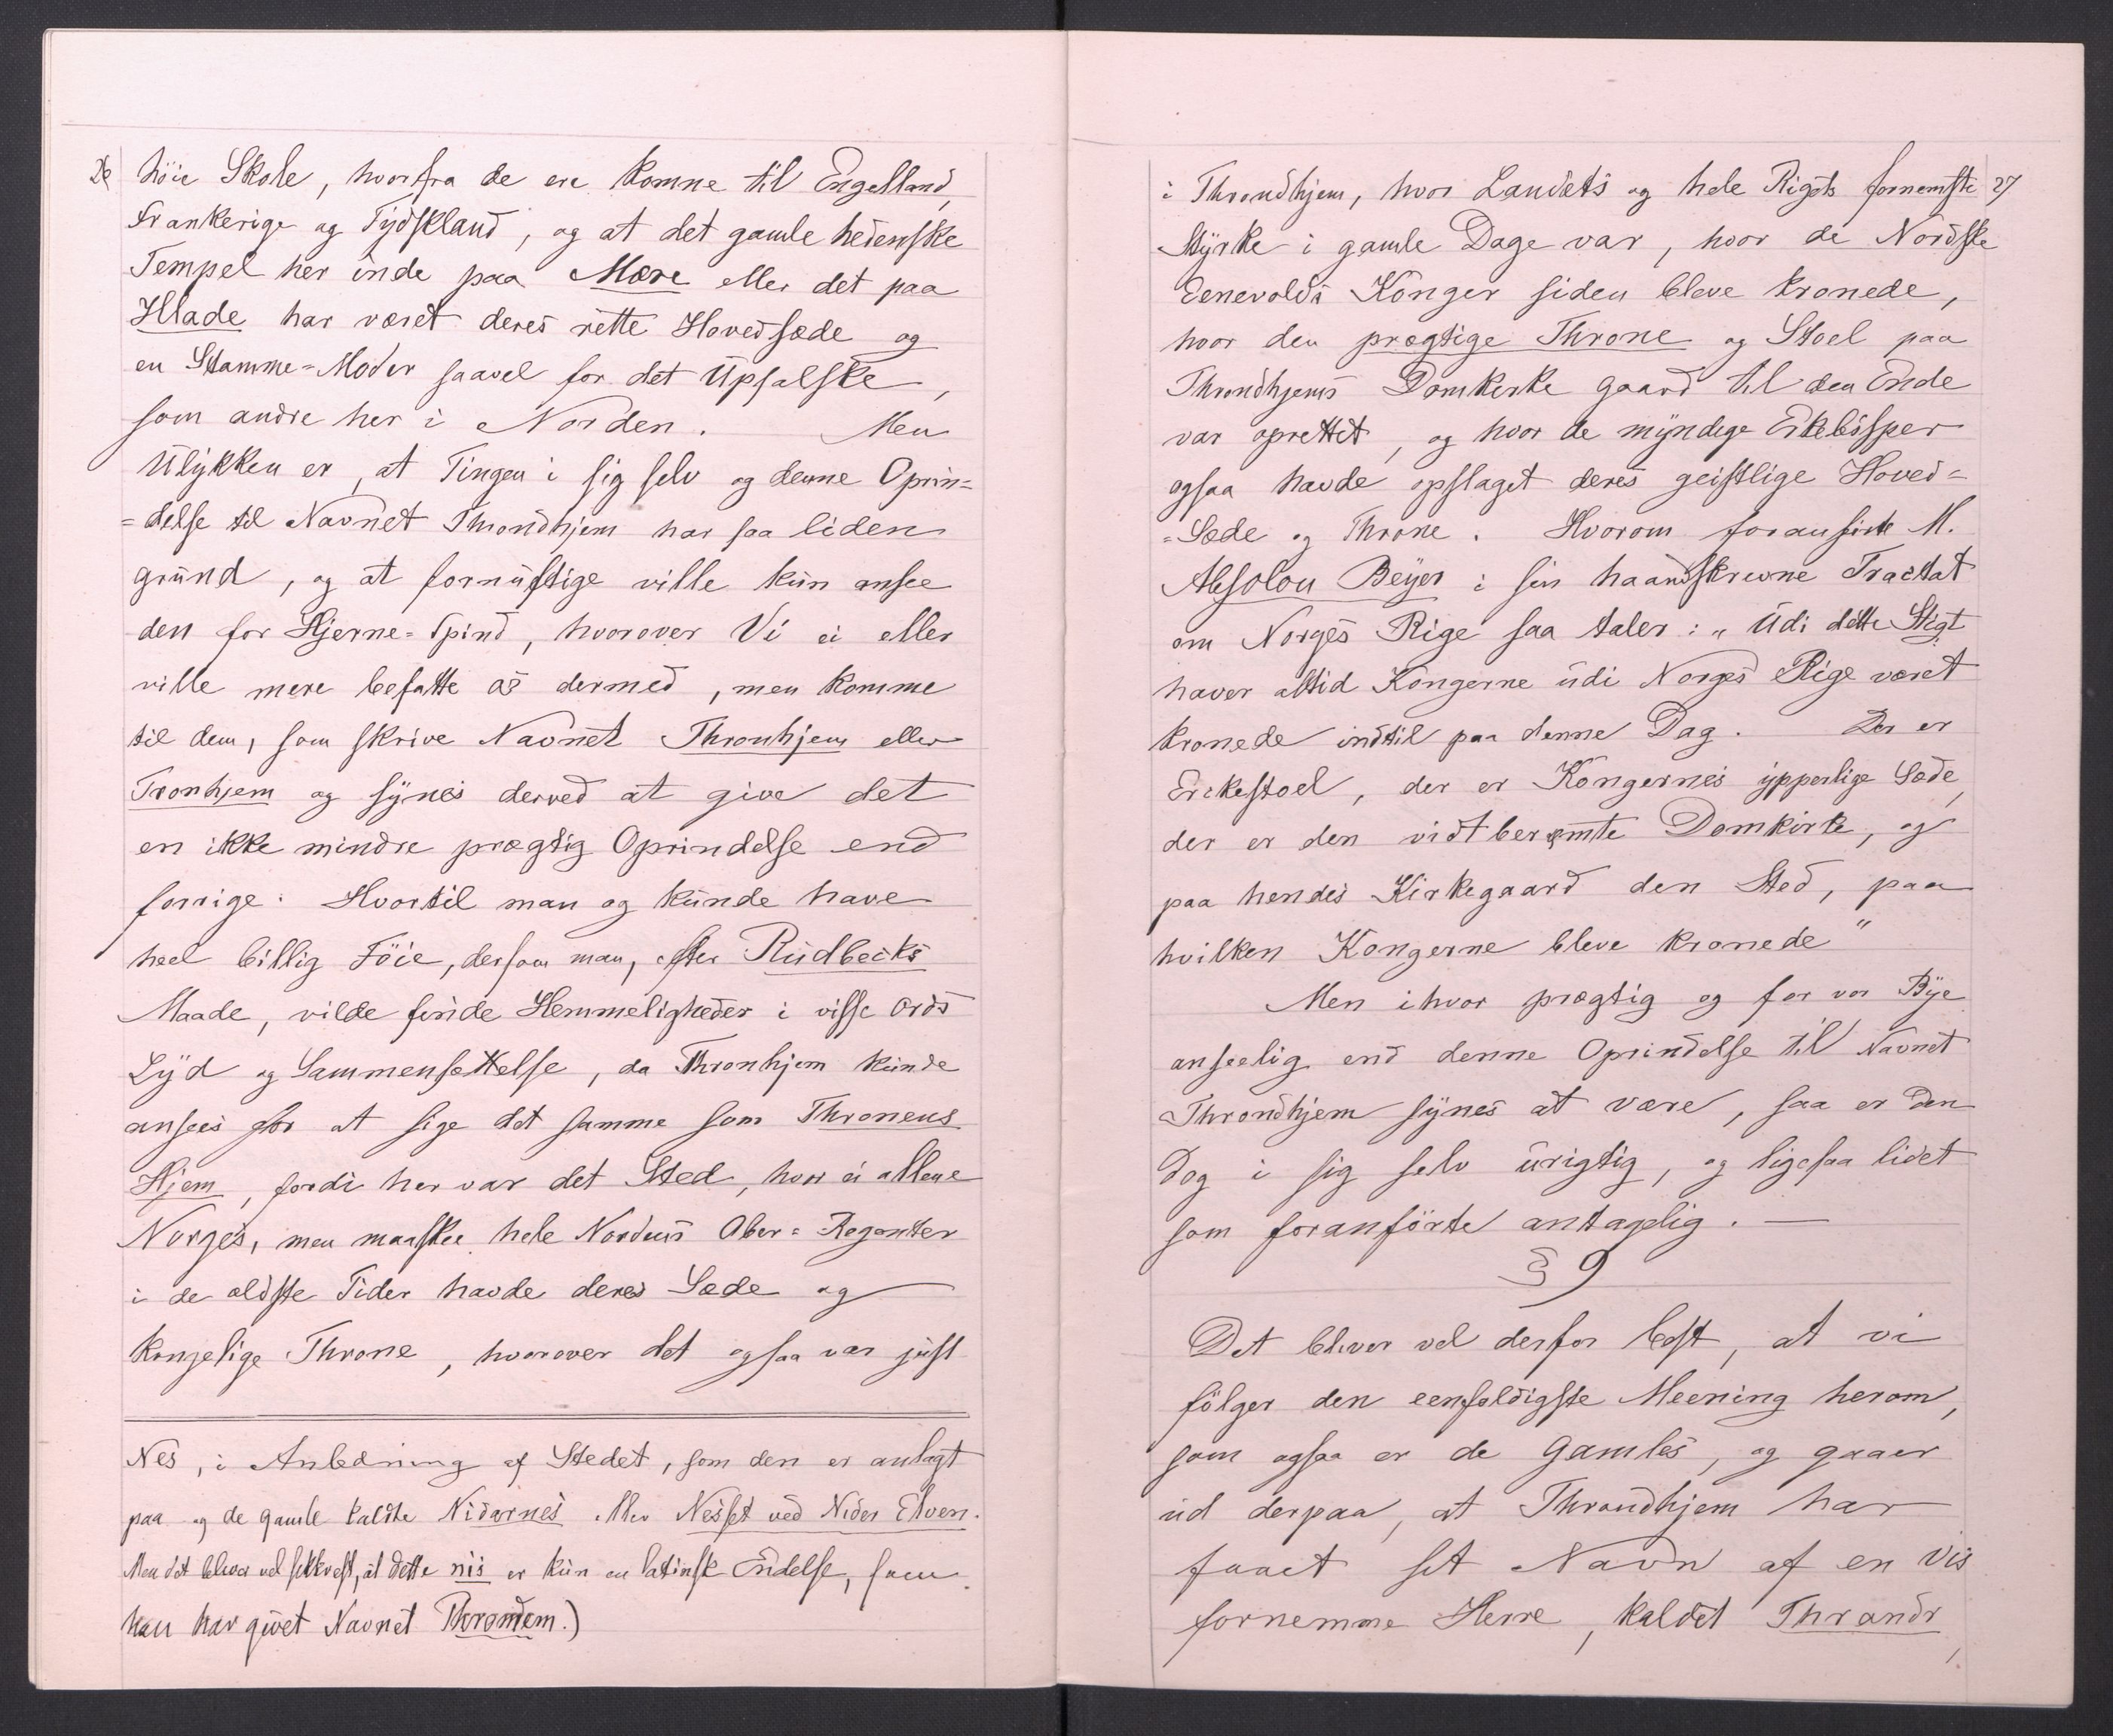 höie Skole, hvorfra de ere komne til Engelland,
Frankerige og Tydskland, og at det gamle hedenske
Tempel her inde paa Mære eller det paa
Hlade har været deres rette Hovedsæde og
en Stamme-Moder saavel for det Upsalske,
som andre her i Norden. Men
Ulykken er, at Tingen i sig selv og denne Oprin=
=delse til Navnet Throndhjem har saa liden
grund, og at fornuftige ville kun ansee
den for Hjerne-Spind, hvorover Vi ei eller
ville mere befatte os dermed, men komme
til dem, som skrive Navnet Thronhjem eller
Tronhjem og synes derved at give det
en ikke mindre prægtig Oprindelse end
forrige. Hvortil man og kunde have
heel billig Föie, dersom man, efter Rudbecks
Maade, vilde finde Hemmeligheder i visse Ords
Lyd og Sammensettelse, da Thronhjem kunde
ansees for at sige det samme som Thronens
Hjem, fordi her var det Sted, hvor ei allene
Norges, men maaskee hele Nordens Ober-Regenter
i de ældste Tider havde deres Sæde og
kongelige Throne, hvorover det ogsaa var just
Nes, i Anledning af Stedet, som den er anlagt
paa og de gamle kaldte Nidarnes eller Nesset ved Nider Elven.
Men det bliver vel sikkrest, at dette nis er kun en latinsk Endelse, som
han har givet Navnet Throndem.)
27
i Throndhjem, hvor Landets og hele Rigets fornemste
Styrke i gamle Dage var, hvor de Nordske
Eenevolds Konger siden bleve kronede,
hvor den prægtige Throne og Stoel paa
Throndhjems Domkerke gaard til den Ende
var oprettet, og hvor de myndige Erkebisper
ogsaa havde opslaget deres geistlige Hoved=
=Sæde og Throne. Hvorom foranførte M.
Absolon Beyer i sin haandskrevne Tractat
om Norges Rige saa taler: "Udi dette Stigt
haver altid Kongerne udi Norges Rige været
kronede indtil paa denne Dag. Der er
Erckestoel, der er Kongernes ypperlige Sæde,
der er den vidtberømte Domkirke, og
paa hendes Kirkegaard den Sted, paa
hvilken Kongerne bleve kronede"
Men ihvor prægtig og for vor Bye
anseelig end denne Oprindelse til Navnet
Throndhjem synes at være, saa er den
Dog i sig selv urigtig, og ligesaa lidet
som foranförte antagelig. —
§ 9
Det bliver vel derfor best, at vi
fölger den eenfoldigste Meening herom,
som ogsaa er de Gamles, og gaaer
ud derpaa, at Throndhjem har
faaet sit Navn af en vis
fornemme Herre, kaldet Thrandr,